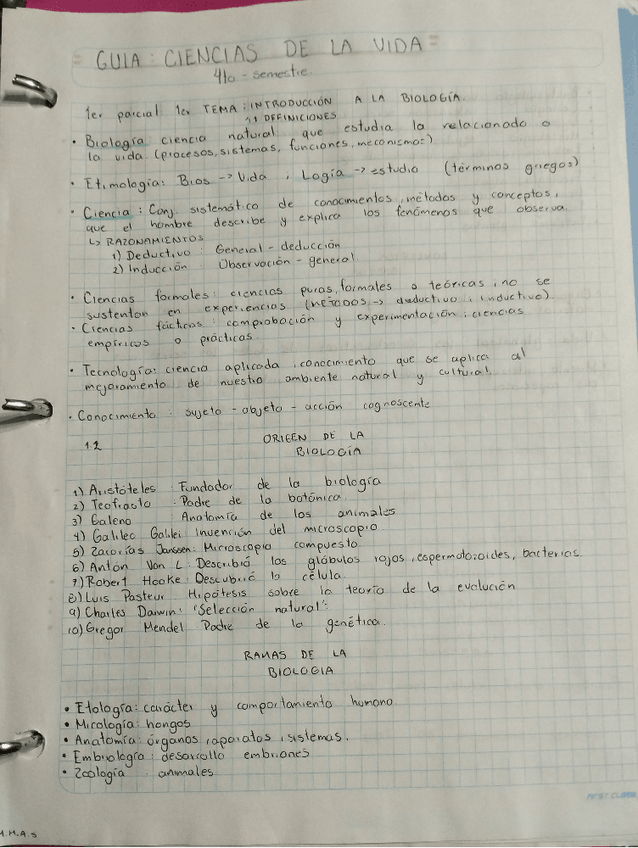 = GUIA: CIENCIAS DE LA VIDA =
4to - semestre.
1er parcial 1er TEMA: INTRODUCCIÓN A LA BIOLOGÍA.
1.1 DEFINICIONES
• Biología ciencia natural que estudia lo relacionado a
la vida (procesos, sistemas, funciones, mecanismos)
• Etimología: Bios -> Vida , Logía -> estudio (términos griegos)
• Ciencia: Conj. sistemático de conocimientos, métodos y conceptos,
que el hombre describe y explica los fenómenos que observa.
↳ RAZONAMIENTOS
1) Deductivo: General - deducción
2) Inducción: Observación - general
• Ciencias formales: ciencias puras, formales o teóricas, no se
sustentan en experiencias (métodos -> deductivo, inductivo)
• Ciencias fácticas: comprobación y experimentación; ciencias
empíricas o prácticas.
• Tecnología: ciencia aplicada, conocimiento que se aplica al
mejoramiento de nuestro ambiente natural y cultural.
• Conocimiento: sujeto - objeto - acción cognoscente
1.2 ORIGEN DE LA
BIOLOGÍA
1) Aristóteles: Fundador de la biología
2) Teofrasto: Padre de la botánica.
3) Galeno: Anatomía de los animales
4) Galileo Galilei Invención del microscopio
5) Zacarías Janssen: Microscopio compuesto
6) Anton Van L: Describió los glóbulos rojos, espermatozoides, bacterias.
7) Robert Hooke: Descubrió la célula.
8) Luis Pasteur Hipótesis sobre la teoría de la evolución
9) Charles Darwin: "Selección natural".
10) Gregor Mendel Padre de la genética.
RAMAS DE LA
BIOLOGIA
• Etología: carácter y comportamiento humano
• Micología: hongos
• Anatomía: órganos, aparatos, sistemas.
• Embriología: desarrollo embriones
• Zoología: animales
FIRST CLASS
M.H.A.S